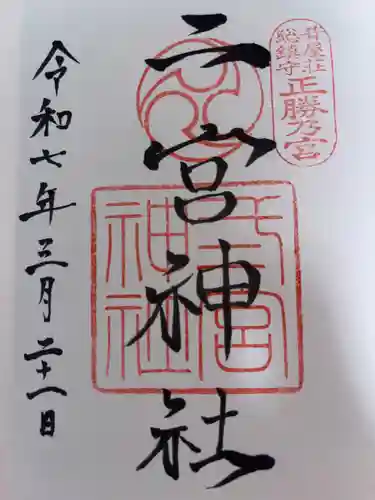 葺屋荘
総鎮守
正勝乃宮
二宮神社
二宮神社
令和七年三月二十一日